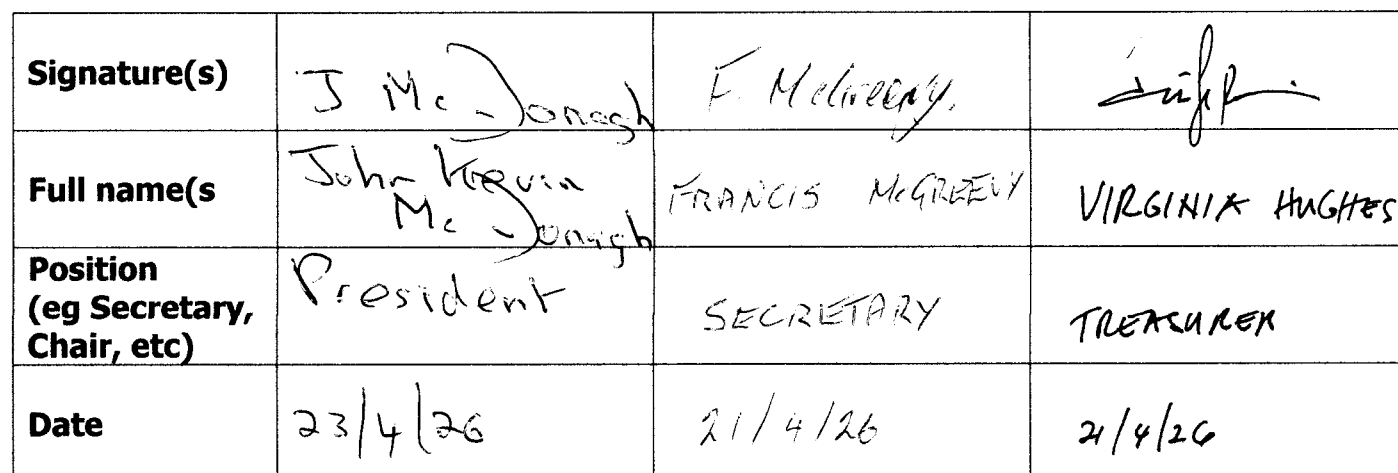 Signature(s) J McDonagh F. McGreevy.
Full name(s John Kevin McDonagh FRANCIS McGREEVY VIRGINIA HUGHES
Position (eg Secretary, Chair, etc) President SECRETARY TREASURER
Date 23/4/26 21/4/26 21/4/26